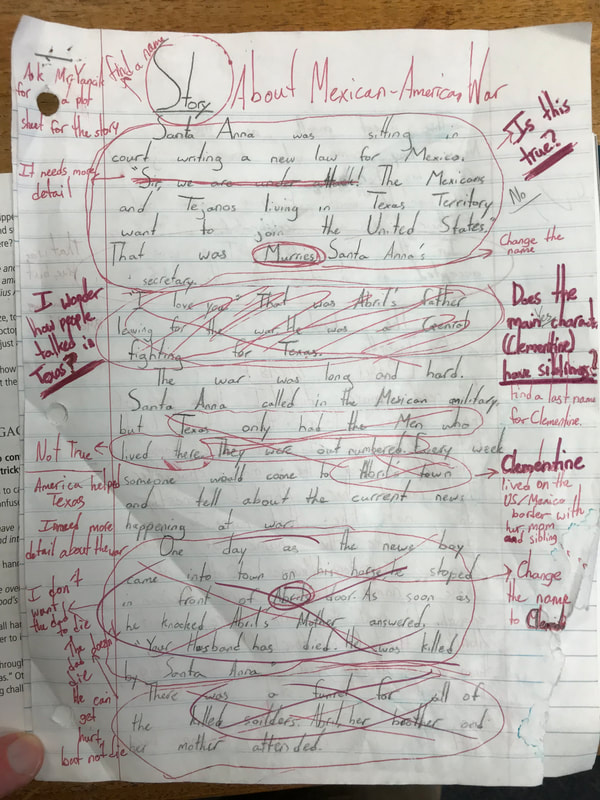 Story About Mexican-American War
find a name
Ask Mr. Yanak
for a plot
sheet for the story
Santa Anna was sitting in
court writing a new law for Mexico.
"Sir, we are under attack! The Mexicans
and Tejanos living in Texas Territory
want to join the United States."
That was Murries, Santa Anna's
secretary.
It needs more
detail
Is this
true?
No
Change the
name
"I love you" That was Abril's father
leaving for the war. He was a General
fighting for Texas.
I wonder
how people
talked in
Texas?
Does the
main charact.
(Clementine)
have siblings?
Yes
find a last name
for Clementine.
The war was long and hard.
Santa Anna called in the Mexican military.
but Texas only had the Men who
lived there. They were out numbered. Every week
someone would come to Abril's town
and tell about the current news
happening at war.
Not True
America helped
Texas
I need more
detail about the war
Clementine
lived on the
US/Mexico
border with
her mom
and sibling
One day as the news boy
came into town on his horse he stoped
in front of Abril's door. As soon as
he knocked Abril's Mother answered,
"Your Husband has died. He was killed
by Santa Anna"
I don't
want
the dad
to die
The
dad
die
He can
get
hurt
but not die
Change
the name
to
There was a funral for all of
the killed soilders. Abril, her brother and
her mother attended.